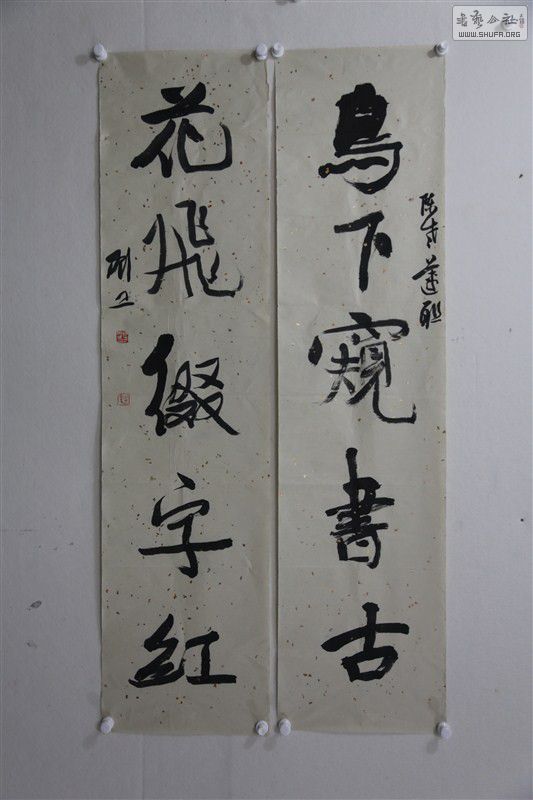 鳥下窺書古
陈老蓮聯
花飛綴字紅
書藝公社
WWW.SHUFA.ORG